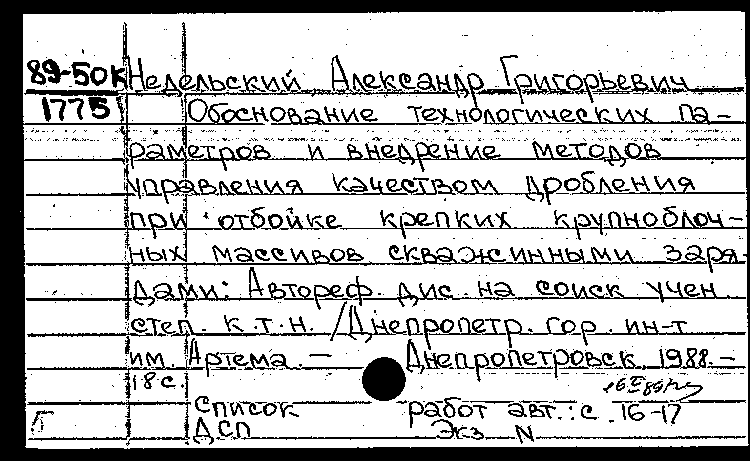 89-50К Недельский Александр Григорьевич
1775 Обоснование технологических па-
раметров и внедрение методов
управления качеством дробления
при отбойке крепких крупноблоч-
ных массивов скважинными заря-
дами: Автореф. дис на соиск учен
степ. к.т.н. /Днепропетр. гор. ин-т
им. Артема. — Днепропетровск, 1988. —
18 с.
Список работ авт.: с. 16-17
ДСП Экз N